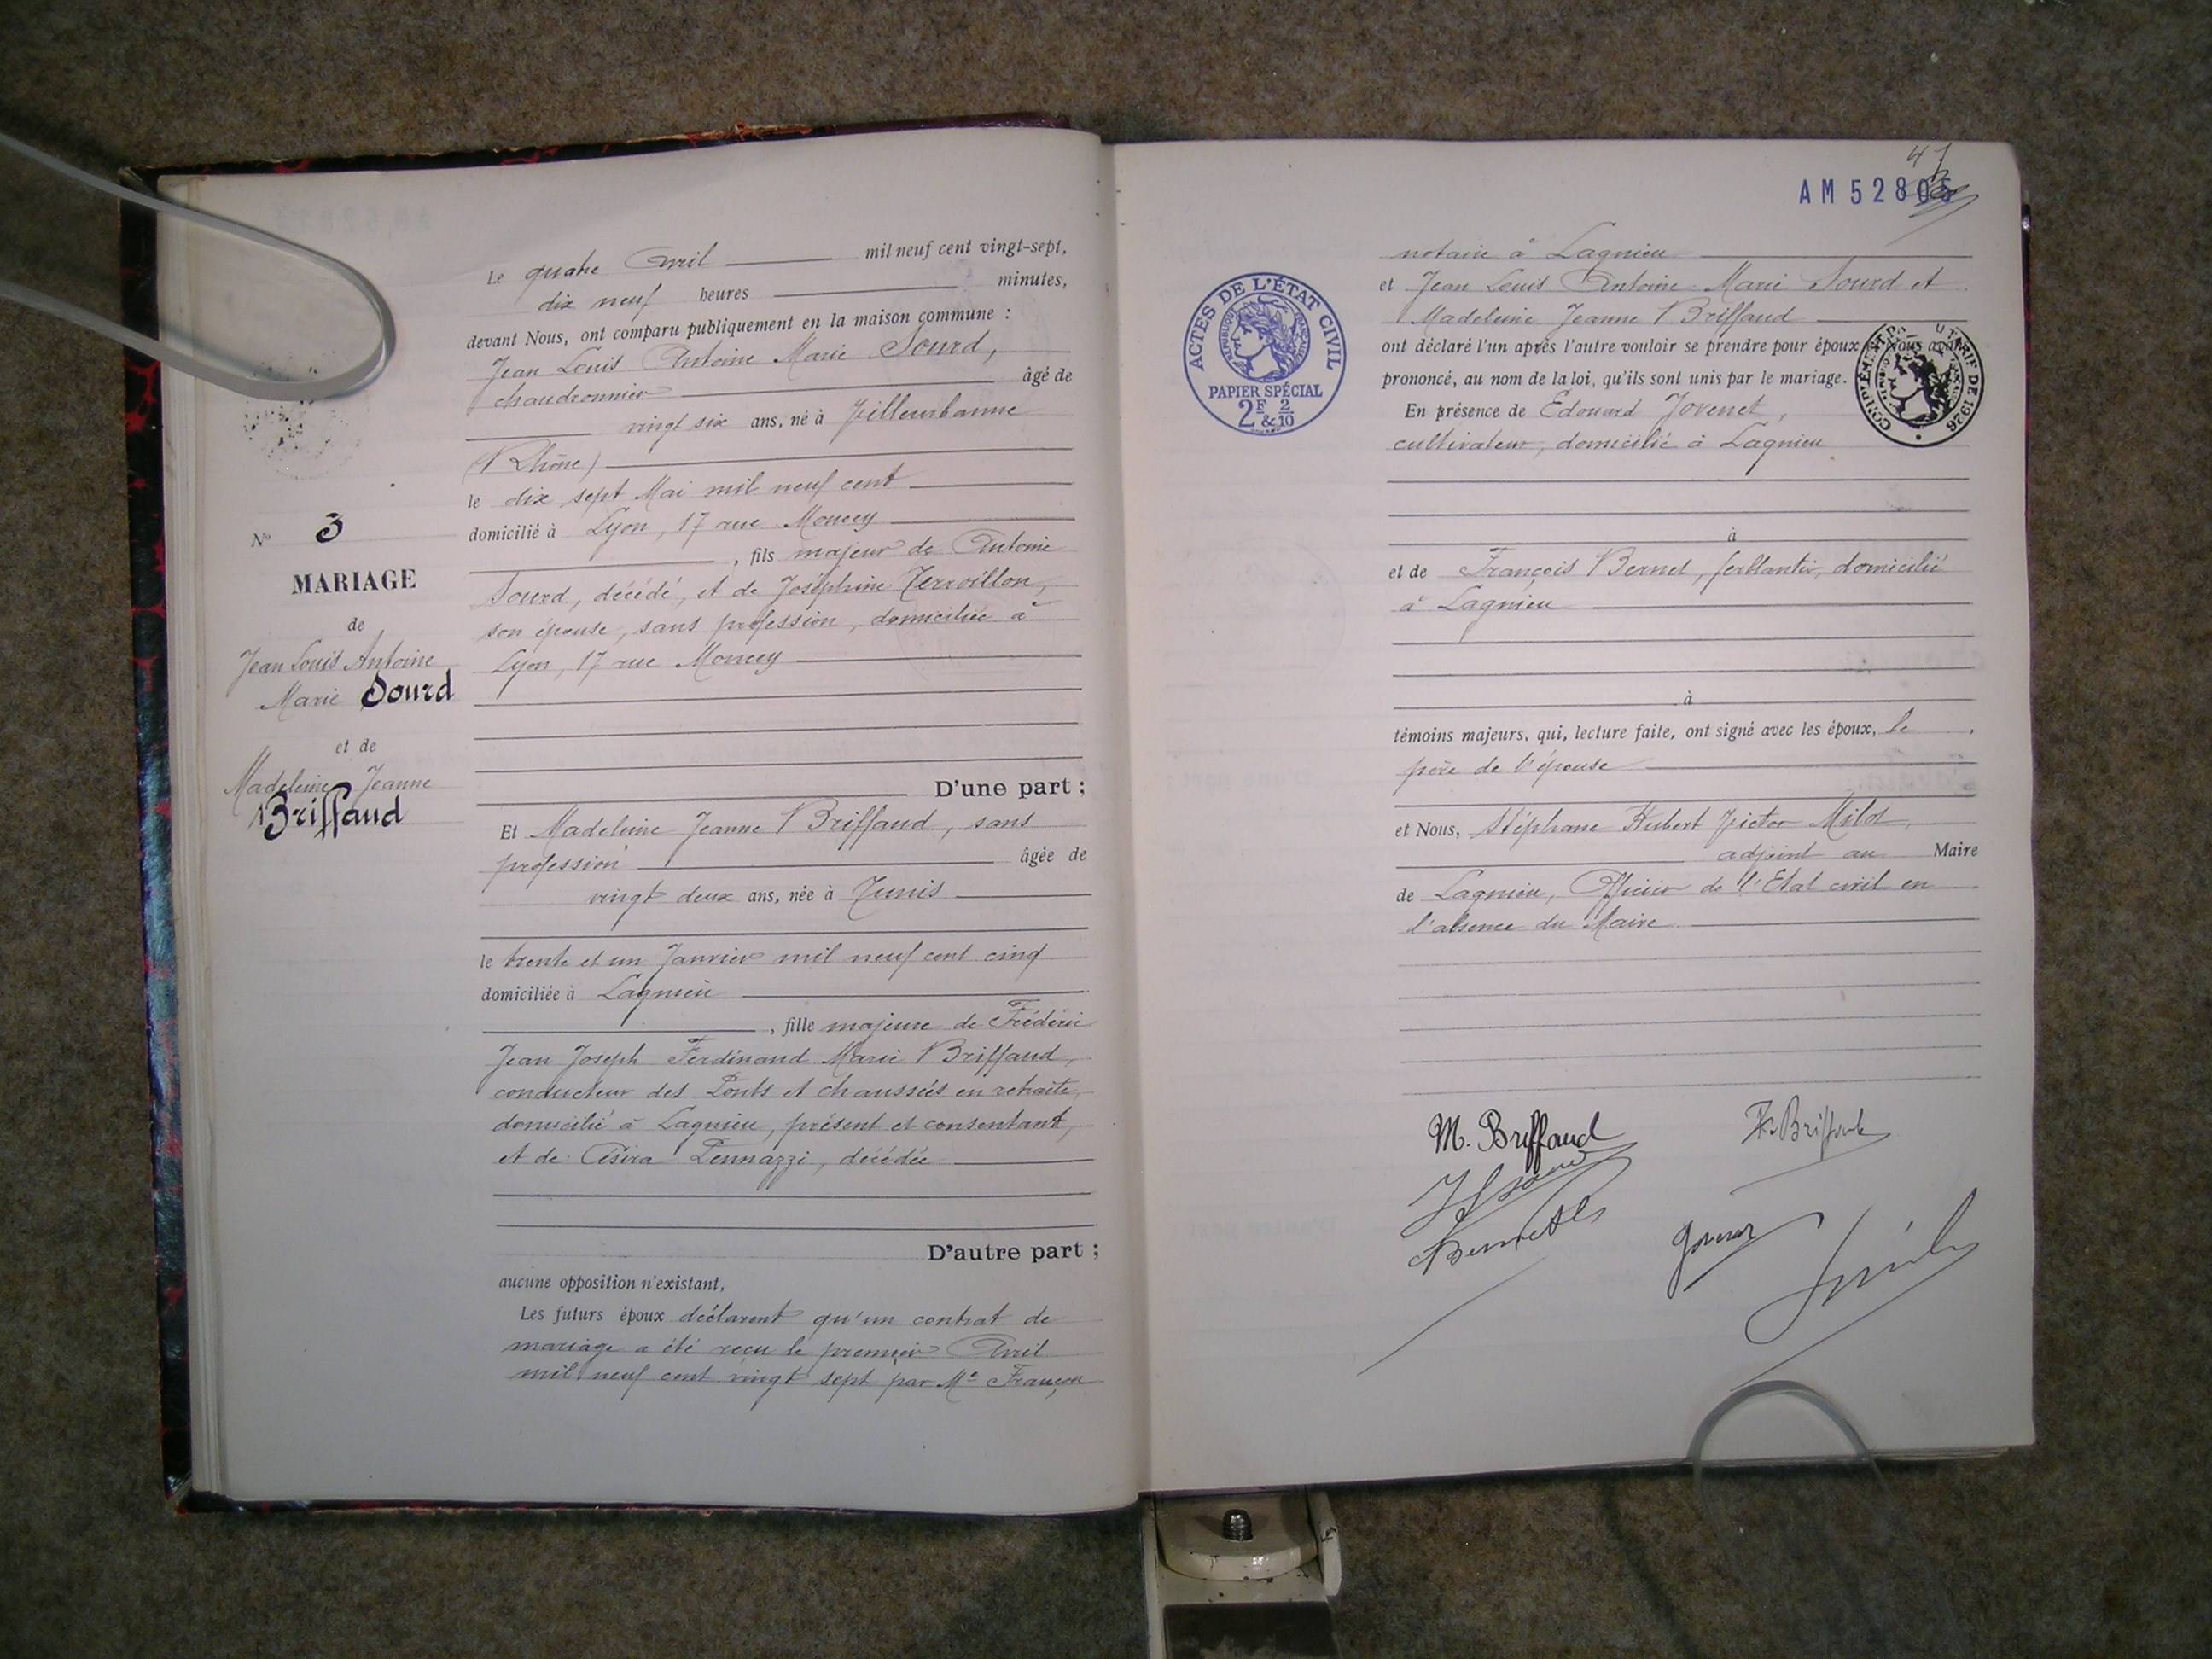 Le quatre Avril mil neuf cent vingt-sept,
dix neuf heures minutes,
devant Nous, ont comparu publiquement en la maison commune :
Jean Louis Antoine Marie Sourd,
chaudronnier âgé de
vingt six ans, né à Villeurbanne
(Rhône)
le dix sept Mai mil neuf cent
domicilié à Lyon, 17 rue Moncey
, fils majeur de Antoine
Sourd, décédé, et de Joséphine Terroillon,
son épouse, sans profession, domiciliée à
Lyon, 17 rue Moncey
D'une part ;
Et Madeleine Jeanne Briffaud, sans
profession âgée de
vingt deux ans, née à Tunis
le trente et un Janvier mil neuf cent cinq
domiciliée à Lagnieu
, fille majeure de Frédéric
Jean Joseph Ferdinand Marie Briffaud,
conducteur des Ponts et chaussées en retraite,
domicilié à Lagnieu, présent et consentant,
et de Césira Pennazzi, décédée
D'autre part ;
aucune opposition n'existant,
Les futurs époux déclarent qu'un contrat de
mariage a été reçu le premier Avril
mil neuf cent vingt sept par Me Françon
No 3
MARIAGE
de
Jean Louis Antoine
Marie Sourd
et de
Madeleine Jeanne
Briffaud
47
AM 52805
notaire à Lagnieu
et Jean Louis Antoine Marie Sourd et
Madeleine Jeanne Briffaud
ont déclaré l'un après l'autre vouloir se prendre pour époux et Nous avons
prononcé, au nom de la loi, qu'ils sont unis par le mariage.
En présence de Edouard Jovenet,
cultivateur, domicilié à Lagnieu
à
et de François Bernet, ferblantier, domicilié
à Lagnieu
à
témoins majeurs, qui, lecture faite, ont signé avec les époux, le
père de l'épouse
et Nous, Stéphane Hubert Victor Milot,
adjoint au Maire
de Lagnieu, Officier de l'Etat civil en
l'absence du Maire
ACTES DE L'ÉTAT CIVIL
RÉPUBLIQUE FRANÇAISE
PAPIER SPÉCIAL
2F & 2/10
TARIF DE 1926
M. Briffaud
F. Briffaud